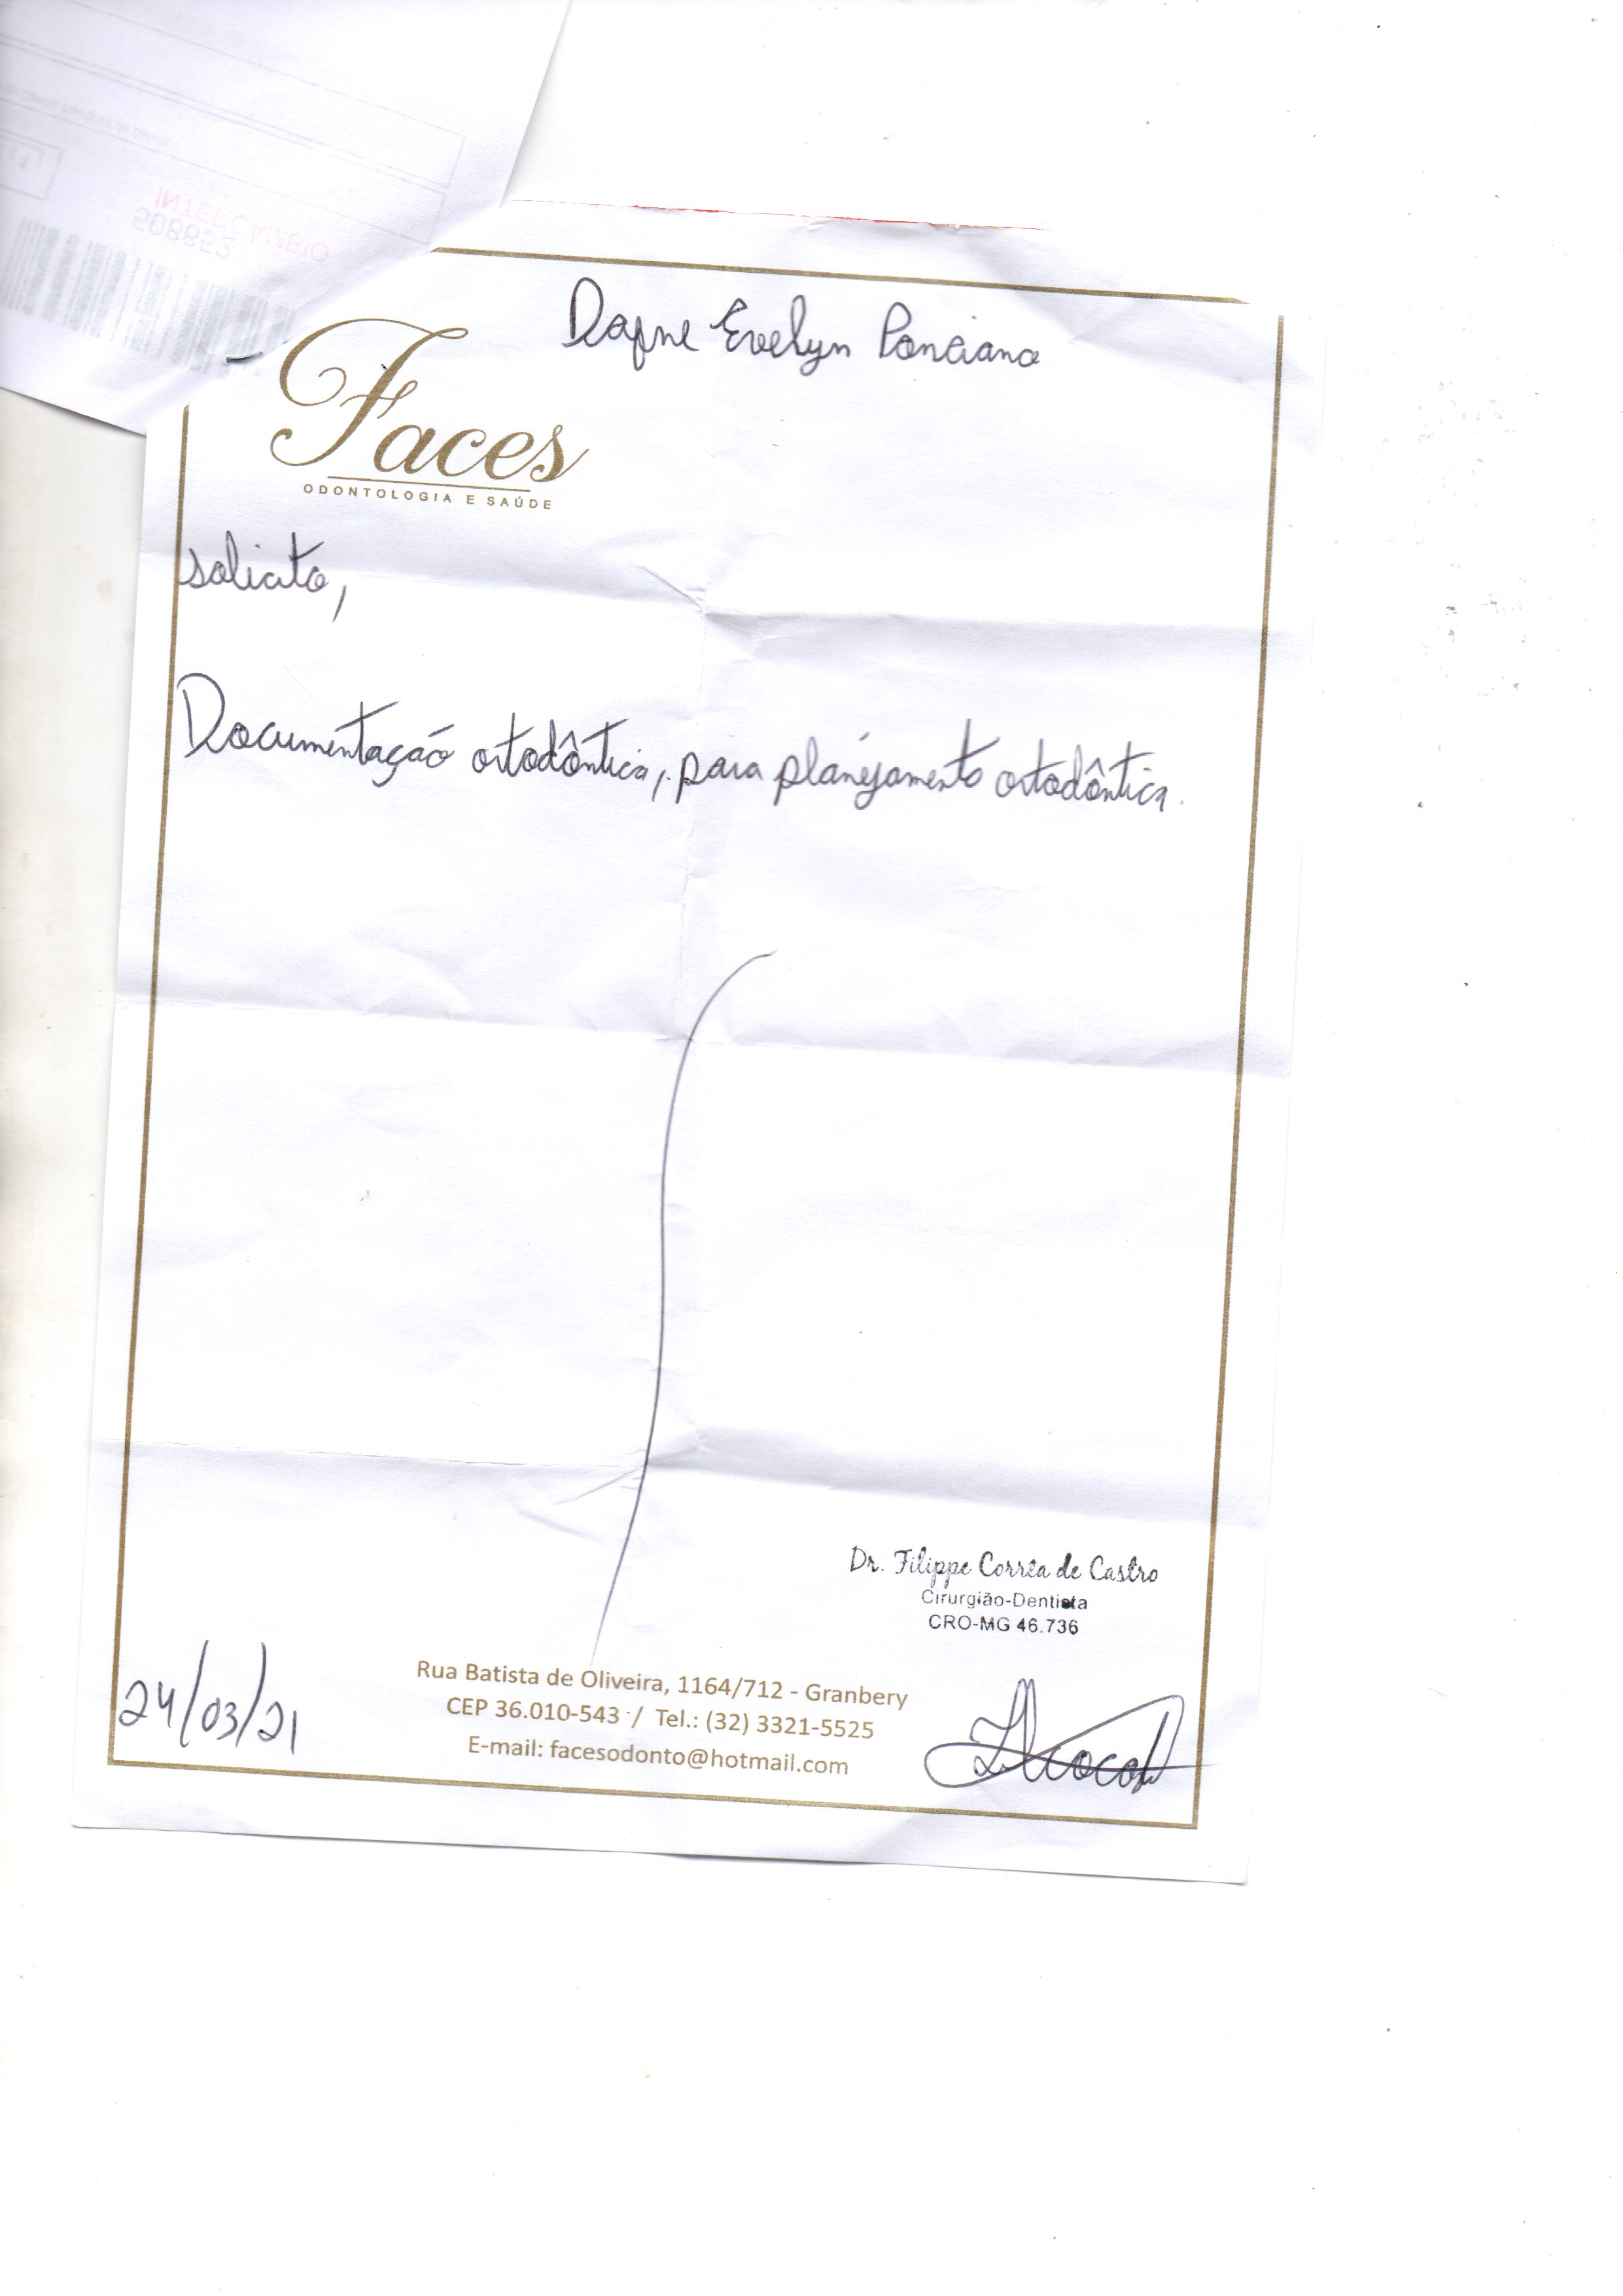 INTERCAMBIO
508652
Dafne Evelyn Ponciano
Faces
ODONTOLOGIA E SAÚDE
solicito,
Documentação ortodôntica, para planejamento ortodôntica.
Dr. Filippe Corrêa de Castro
Cirurgião-Dentista
CRO-MG 46.736
24/03/21
Rua Batista de Oliveira, 1164/712 - Granbery
CEP 36.010-543 / Tel.: (32) 3321-5525
E-mail: facesodonto@hotmail.com